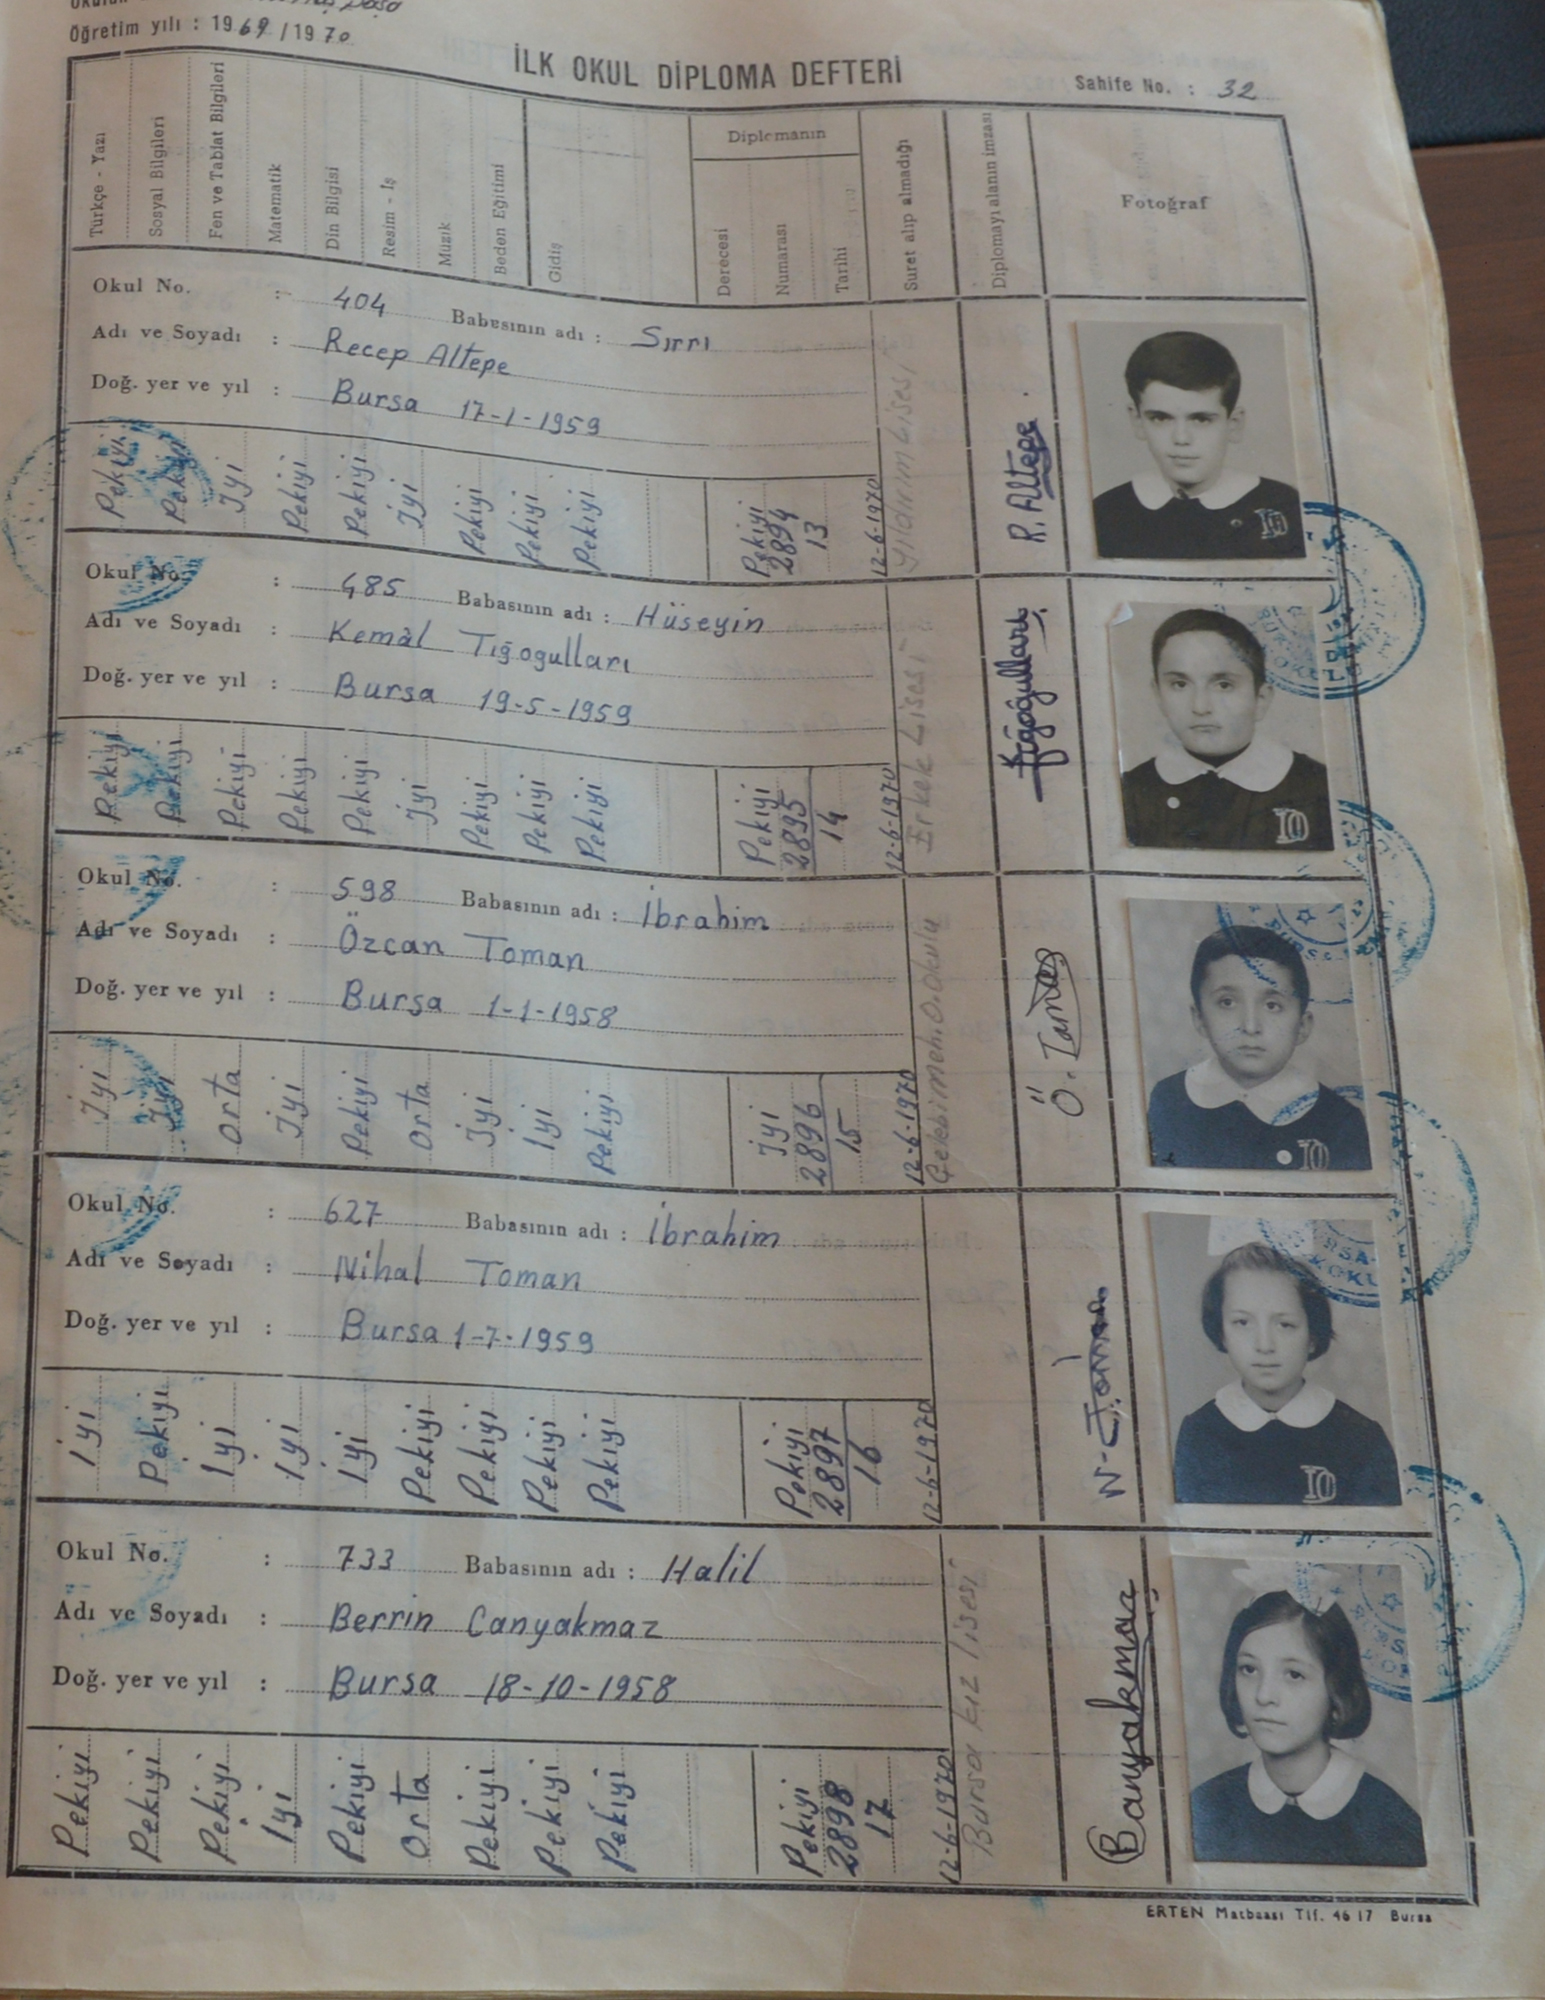 Öğretim yılı : 1969 / 1970
İLK OKUL DİPLOMA DEFTERİ
Sahife No. : 32
Türkçe - Yazı
Sosyal Bilgileri
Fen ve Tabiat Bilgileri
Matematik
Din Bilgisi
Resim - İş
Müzik
Beden Eğitimi
Gidiş
Diplomanın
Derecesi
Numarası
Tarihi
Suret alıp almadığı
Diplomayı alanın imzası
Fotoğraf
Okul No. : 404 Babasının adı : Sırrı
Adı ve Soyadı : Recep Altepe
Doğ. yer ve yıl : Bursa 17-1-1959
Pekiyi Pekiyi İyi Pekiyi Pekiyi İyi Pekiyi Pekiyi Pekiyi
Pekiyi
2894
13
12-6-1970
Yıldırım Lisesi
R. Altepe
Okul No. : 485 Babasının adı : Hüseyin
Adı ve Soyadı : Kemal Tığogulları
Doğ. yer ve yıl : Bursa 19-5-1959
Pekiyi Pekiyi Pekiyi Pekiyi Pekiyi İyi Pekiyi Pekiyi Pekiyi
Pekiyi
2895
14
12-6-1970
Erkek Lisesi
Tığoğulları
Okul No. : 598 Babasının adı : İbrahim
Adı ve Soyadı : Özcan Toman
Doğ. yer ve yıl : Bursa 1-1-1958
İyi İyi Orta İyi Pekiyi Orta İyi İyi Pekiyi
İyi
2896
15
12-6-1970
O. Okulu
Ö. Toman
Okul No. : 627 Babasının adı : İbrahim
Adı ve Soyadı : Nihal Toman
Doğ. yer ve yıl : Bursa 1-7-1959
İyi Pekiyi İyi İyi İyi Pekiyi Pekiyi Pekiyi Pekiyi
Pekiyi
2897
16
12-6-1970
N. Toman
Okul No. : 733 Babasının adı : Halil
Adı ve Soyadı : Berrin Canyakmaz
Doğ. yer ve yıl : Bursa 18-10-1958
Pekiyi Pekiyi Pekiyi İyi Pekiyi Orta Pekiyi Pekiyi Pekiyi
Pekiyi
2898
17
12-6-1970
Bursa kız lisesi
Banyakmaz
ERTEN Matbaası Tlf. 46 17 Bursa